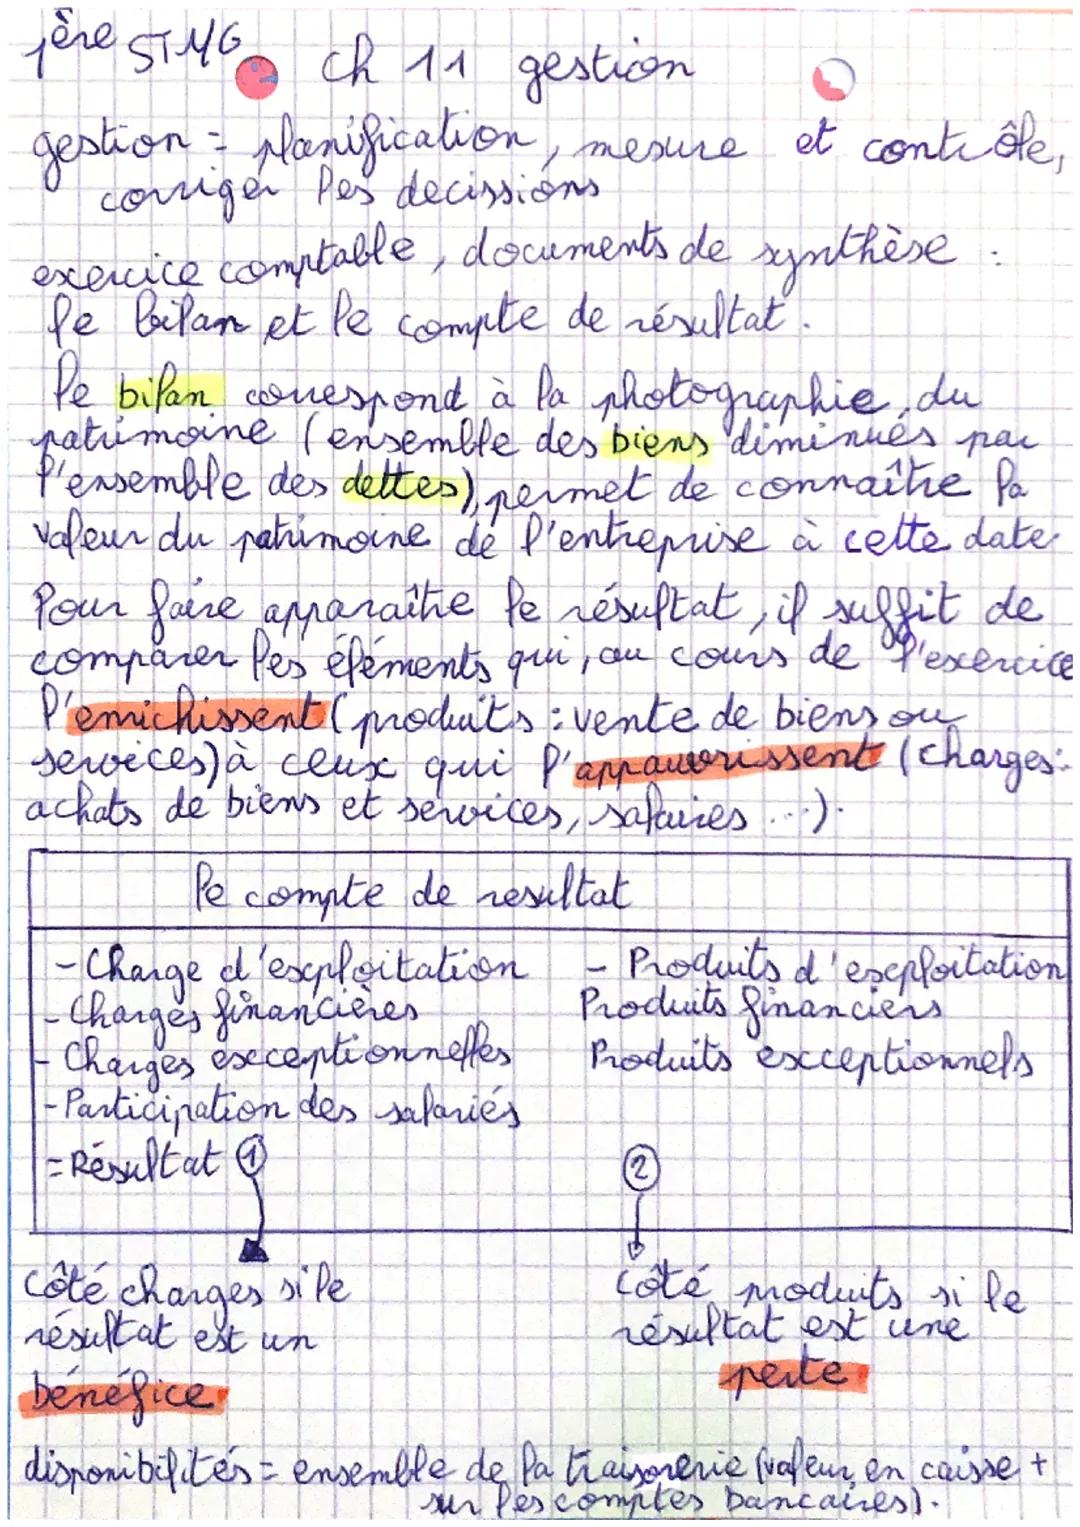 1ère STMG
Ch 11 gestion
gestion = planification, mesure et contrôle,
corriger les decissions
exercice comptable, documents de synthèse :
le bilan et le compte de résultat.
le bilan correspond à la photographie du
patrimoine (ensemble des biens diminués par
l'ensemble des dettes), permet de connaître la
valeur du patrimoine de l'entreprise à cette date.
Pour faire apparaître le résultat, il suffit de
comparer les éléments qui, au cours de l'exercice
l'enrichissent (produits : vente de biens ou
services) à ceux qui l'appauvrissent (charges :
achats de biens et services, salaires ...).
le compte de resultat
- Charge d'exploitation - Produits d'exploitation
- Charges financières Produits financiers
- Charges exceptionnelles Produits exceptionnels
- Participation des salariés
= Résultat 1 2
côté charges si le côté produits si le
résultat est un résultat est une
bénéfice perte
disponibilités = ensemble de la traisorerie (valeur en caisse +
sur les comptes bancaires).